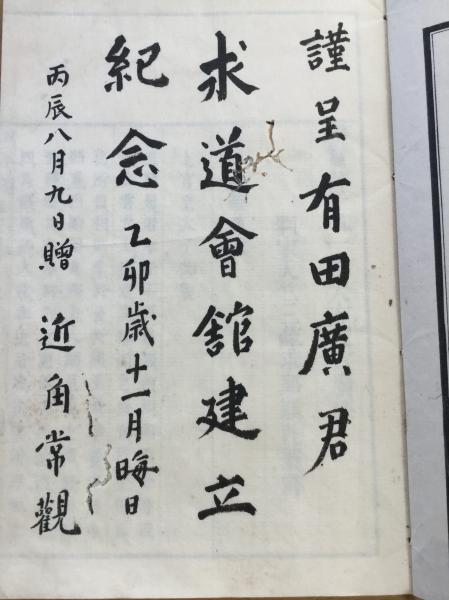 謹呈有田廣君
求道會舘建立
紀念 乙卯歳十一月晦日
丙辰八月九日贈 近角常觀